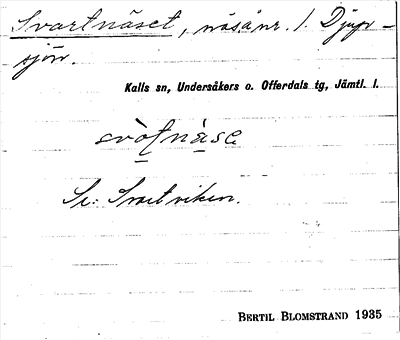 Svartnäset, näs å nr. 1. Djup-
sjön.
Kalls sn, Undersåkers o. Offerdals tg, Jämtl. l.
Se: Svartviken.
BERTIL BLOMSTRAND 1935